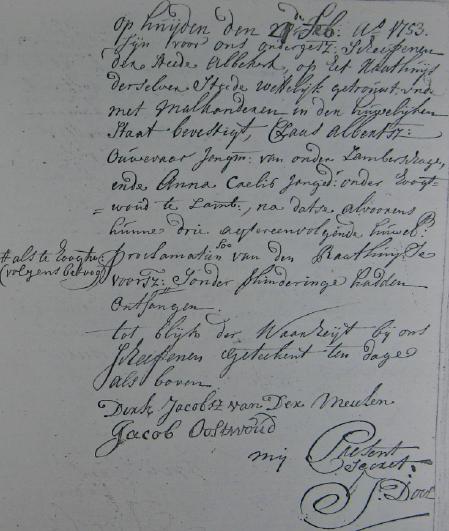 Op huijden den 21 Feb: Ao 1753.
Sijn voor ons ondergesz: Scheepenen
der Steede Abbekerk, op het Raathuijs
derselver Steede wettelijk getrouwt, ende
met Malkanderen in den huwelijken
Staat bevestigt, Claas Albertsz:
Ouwevaar Jongm: van onder Lambertschage,
ende Anna Caelis Jonged: onder Hoogt-
=woud te Lamb:, na datse alvoorens
hunne drie agtereenvolgende huwel:
Proclamatien soo van den Raathuijse
# als te Hoogtw:
(volgens betoog)
voorsz: # Sonder Hinderinge hadden
Ontfangen.
tot blijk der Waarheijt bij ons
Scheepenen geteekent ten dage
als boven
Dirk Jacobsz van Der Meulen
Jacob Oostwoud
mij Present
Secret:
S: Door